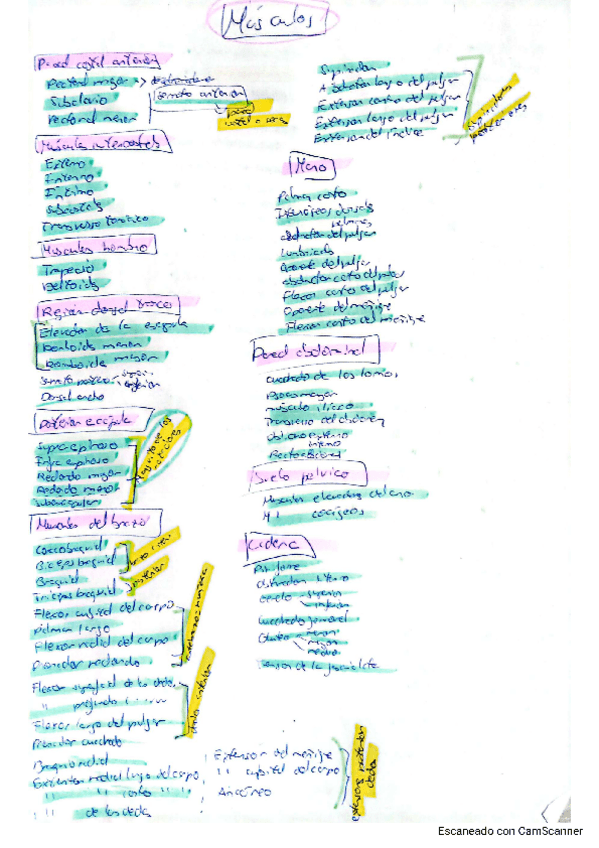 Músculos
Pared costal anterior
Pectoral mayor →
Subclavio
serrato anterior
Pectoral menor
Músculos intercostales
Externo
Interno
Íntimo
Subcostales
Transverso torácico
Músculos hombro
Trapecio
Deltoides
Región dorsal
Elevador de la escápula
Romboide menor
Romboide mayor
Serrato superior
inferior
Dorsal ancho
posterior escápula
Supraespinoso
Infraespinoso
Redondo mayor
Redondo menor
Subescapular
Manguito de los rotadores
Músculos del brazo
Coracobraquial
Bíceps braquial
Braquial
Tríceps braquial
posterior
Flexor cubital del carpo
Palmar largo
Flexor radial del carpo
Pronador redondo
Flexor superficial de los dedos
" profundo "
Flexor largo del pulgar
Pronador cuadrado
Braquiorradial
Extensor radial largo del carpo
" " corto " "
" " de los dedos
Extensor del meñique
" cubital del carpo
Ancóneo
Supinador
Abductor largo del pulgar
Extensor corto del pulgar
Extensor largo del pulgar
Extensor del índice
Mano
Palmar corto
Interóseos dorsales
palmares
abductor del pulgar
Lumbricales
Oponente del pulgar
abductor corto del pulgar
Flexor corto del pulgar
Oponente del meñique
Flexor corto del meñique
Pared abdominal
cuadrado de los lomos
Psoas mayor
músculo ilíaco
Transverso del abdomen
oblicuo externo
interno
Recto abdominal
Suelo pélvico
Músculos elevadores del ano
coccígeos
Cadera
Piriforme
obturador interno
Gemelo superior
inferior
Cuadrado femoral
Glúteo menor
mayor
medio
Tensor de la fascia lata
Escaneado con CamScanner